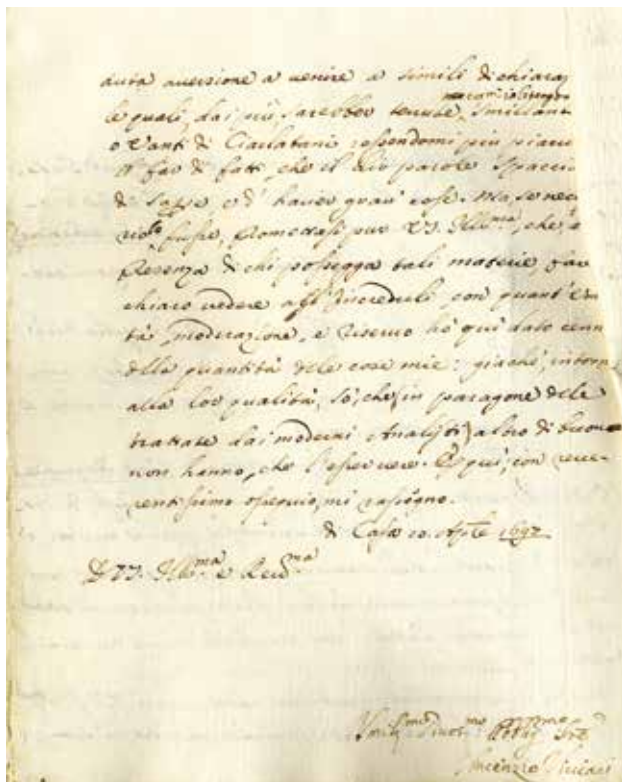 auta auersione a uenire a simili dichiaraz
le quali, dai più sarebber tenute, Smillant
o Vanti di Ciarlatani essendomi più piaciu
il far di fatti, che il dir parole spaccio
di sapere e d'hauer gran cose. Ma se nec
fusse, V.S. Illma, che
presenza di chi possegga tali materie, far
chiaro vedere agl'Increduli con quant'
tà, moderazione, e riseruo hò qui dato cenn
della quantità dele cose mie: giachè, intorn
alla lor qualità, sò, che in paragone dele
trattate dai moderni Analisti altro di buono
non hanno, che l'esser uere. E qui, con reue-
rentissimo ossequio, mi rassegno.
di Casa 20. Aple 1692
D V.S. Illma e Reuma
Umilmo Deuotmo
Vincenzio Viuiani